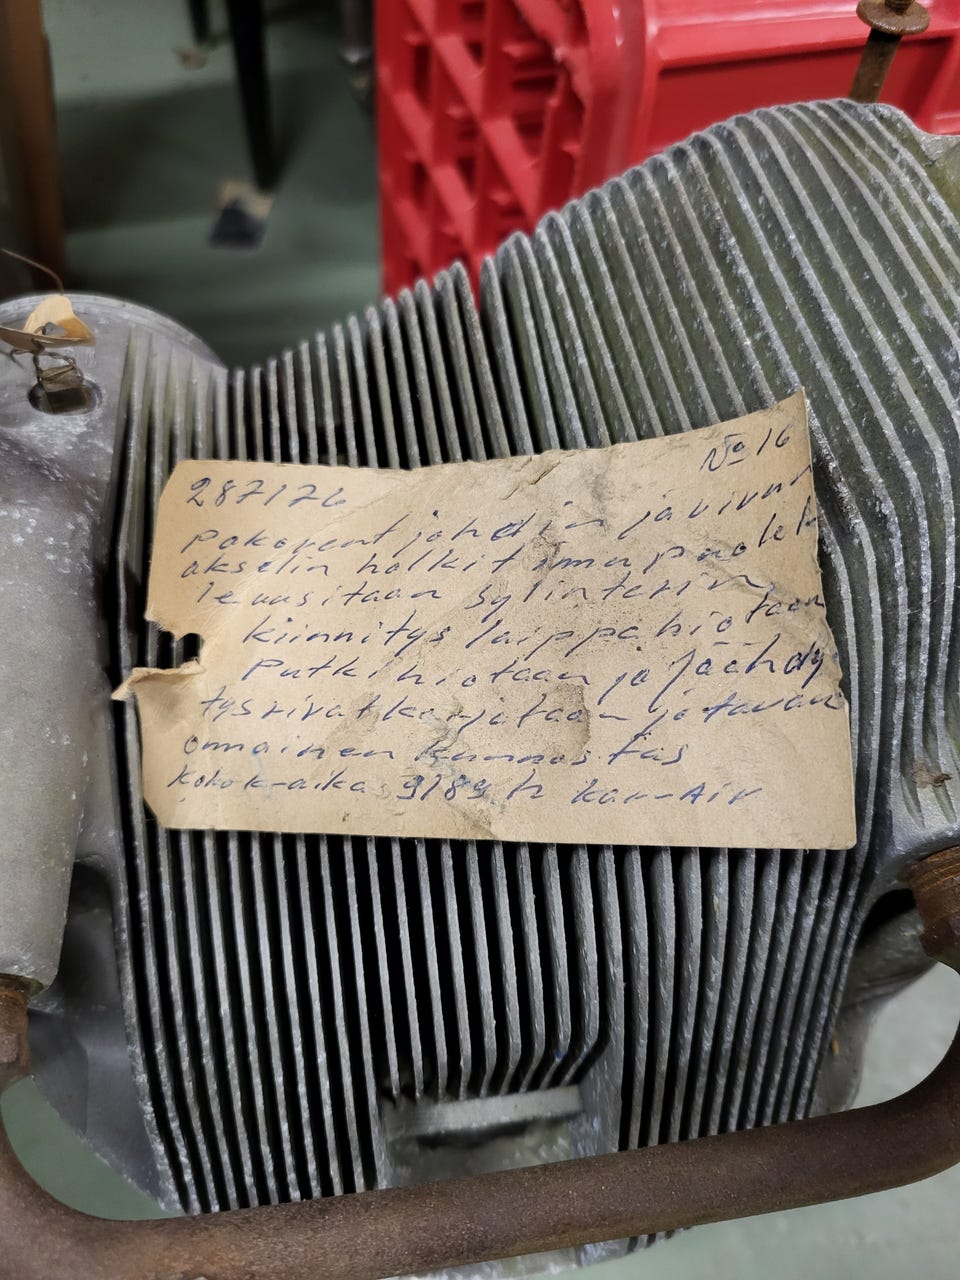 287176 No 16
Pakovent johdin ja vivun
akselin holkit imu puolelt
leuusitaan sylinterin
kiinnitys laippa hiotaan
Putki hiotaan ja jäähdy
tysrivat korjataan ja tavan
omainen kunnostus
Kokok-aika 9189 h kar-Air